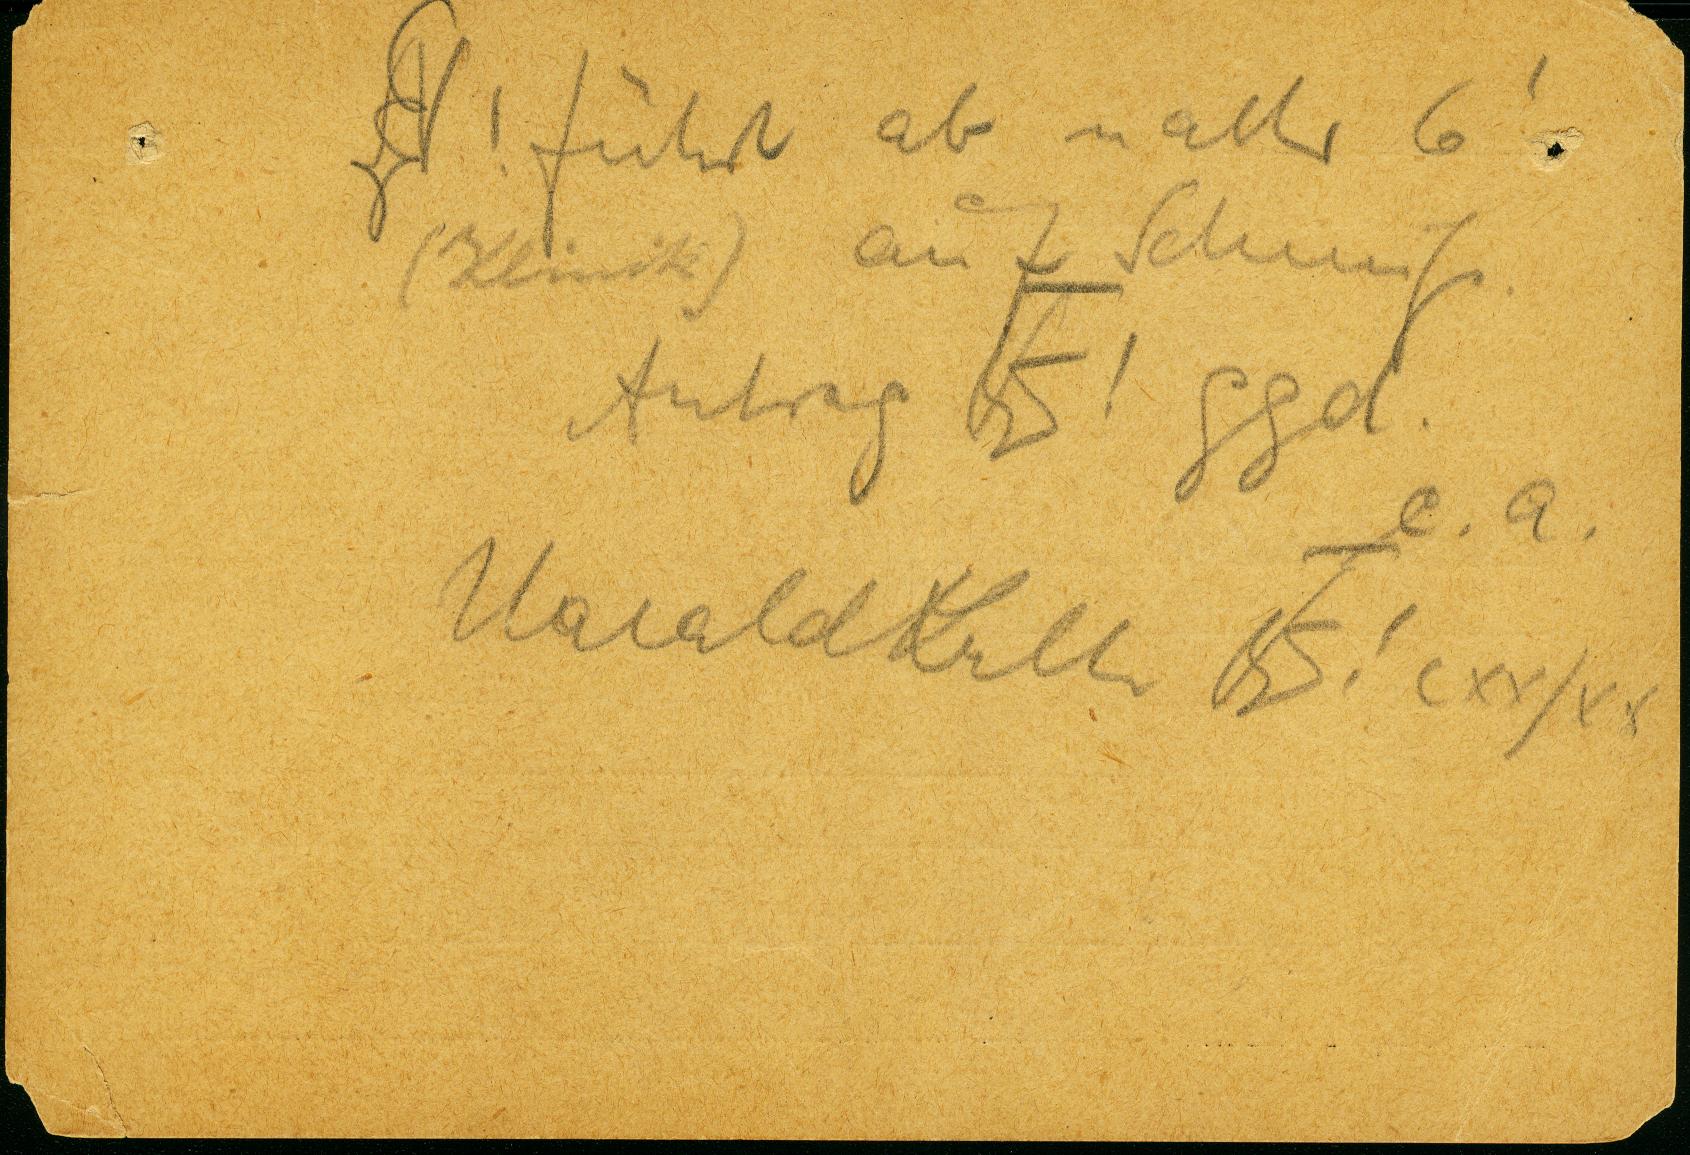 ! führt ab n alter 6!
(Klinik) auf Schmuf.
Antrag ! ggd.
e. a.
Harald Keller ! cxx/xx